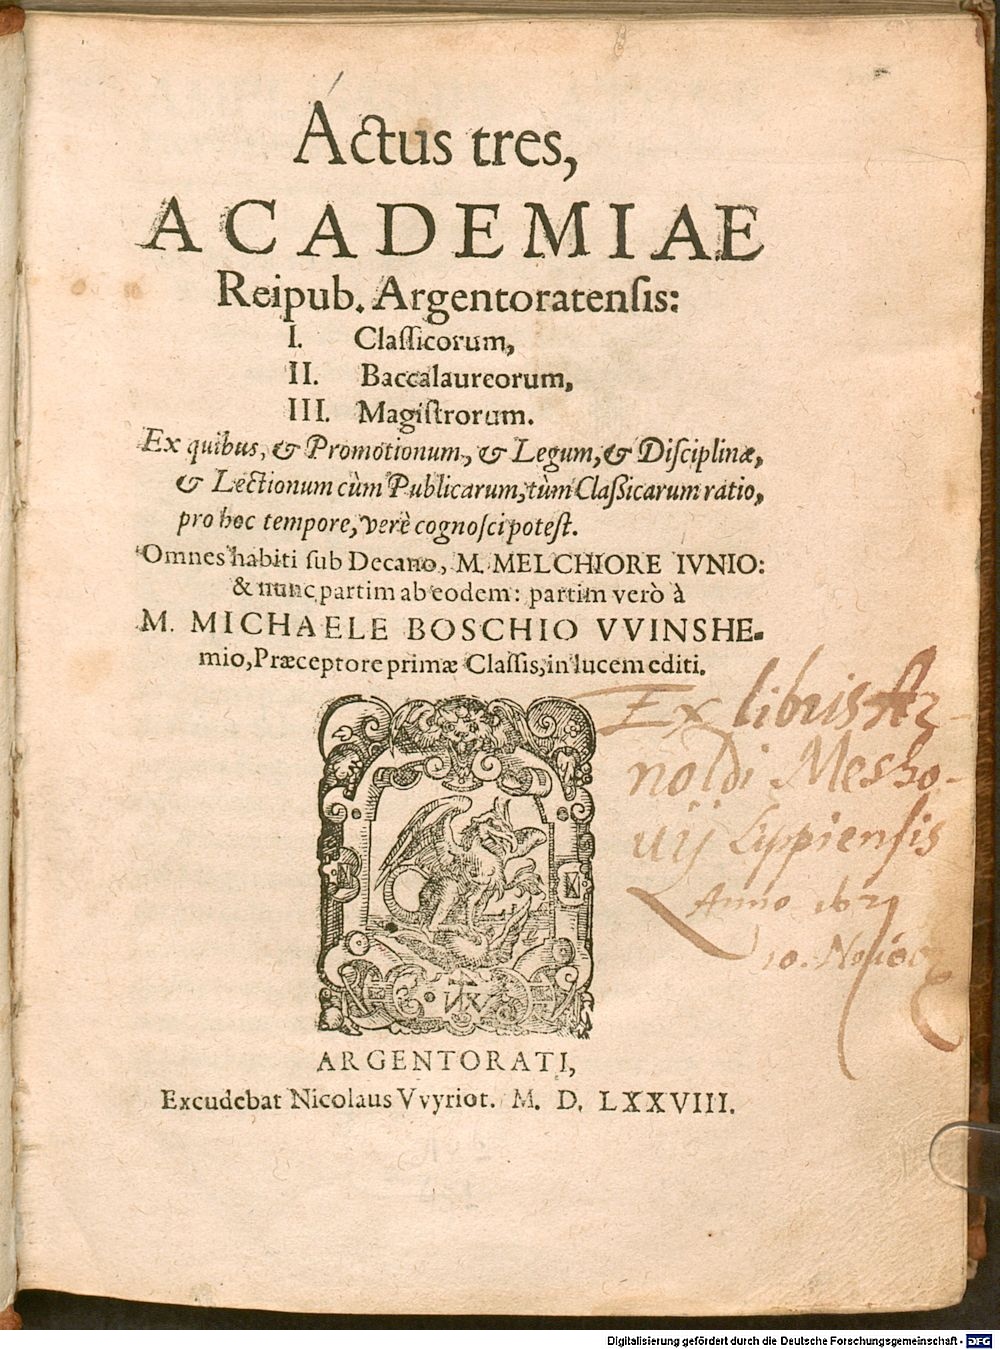 Actus tres,
ACADEMIAE
Reipub. Argentoratensis:
I. Classicorum,
II. Baccalaureorum,
III. Magistrorum.
Ex quibus, & Promotionum, & Legum, & Disciplinæ,
& Lectionum cùm Publicarum, tùm Classicarum ratio,
pro hoc tempore, verè cognosci potest.
Omnes habiti sub Decano, M. MELCHIORE IVNIO:
& nunc partim ab eodem: partim verò à
M. MICHAELE BOSCHIO VVINSHE-
mio, Præceptore primæ Classis, in lucem editi.
Ex libris Ar-
noldi Mesho-
uij Lippiensis
Anno
10.
ARGENTORATI,
Excudebat Nicolaus Vvyriot. M. D. LXXVIII.
Digitalisierung gefördert durch die Deutsche Forschungsgemeinschaft - DFG